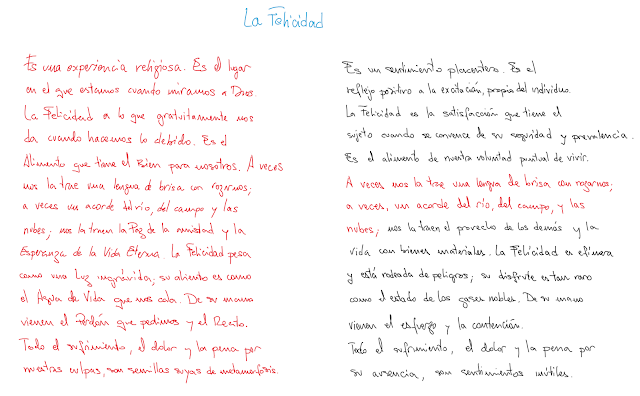 La Felicidad
Es una experiencia religiosa. Es el lugar
en el que estamos cuando miramos a Dios.
La Felicidad es lo que gratuitamente nos
da cuando hacemos lo debido. Es el
Alimento que tiene el Bien para nosotros. A veces
nos la trae una lengua de brisa con rozarnos;
a veces un acorde del río, del campo y las
nubes; nos la traen la Paz de la amistad y la
Esperanza de la Vida Eterna. La Felicidad pesa
como una Luz ingrávida; su aliento es como
el Agua de Vida que nos cala. De su mano
vienen el Perdón que pedimos y el Recato.
Todo el sufrimiento, el dolor y la pena por
nuestras culpas, son semillas suyas de metamorfosis.
Es un sentimiento placentero. Es el
reflejo positivo a la excitación, propia del individuo.
La Felicidad es la satisfacción que tiene el
sujeto cuando se convence de su seguridad y prevalencia.
Es el alimento de nuestra voluntad puntual de vivir.
A veces nos la trae una lengua de brisa con rozarnos;
a veces, un acorde del río, del campo, y las
nubes; nos la traen el provecho de los demás y la
vida con bienes materiales. La Felicidad es efímera
y está rodeada de peligros; su disfrute es tan raro
como el estado de los gases nobles. De su mano
vienen el esfuerzo y la contención.
Todo el sufrimiento, el dolor y la pena por
su ausencia, son sentimientos inútiles.